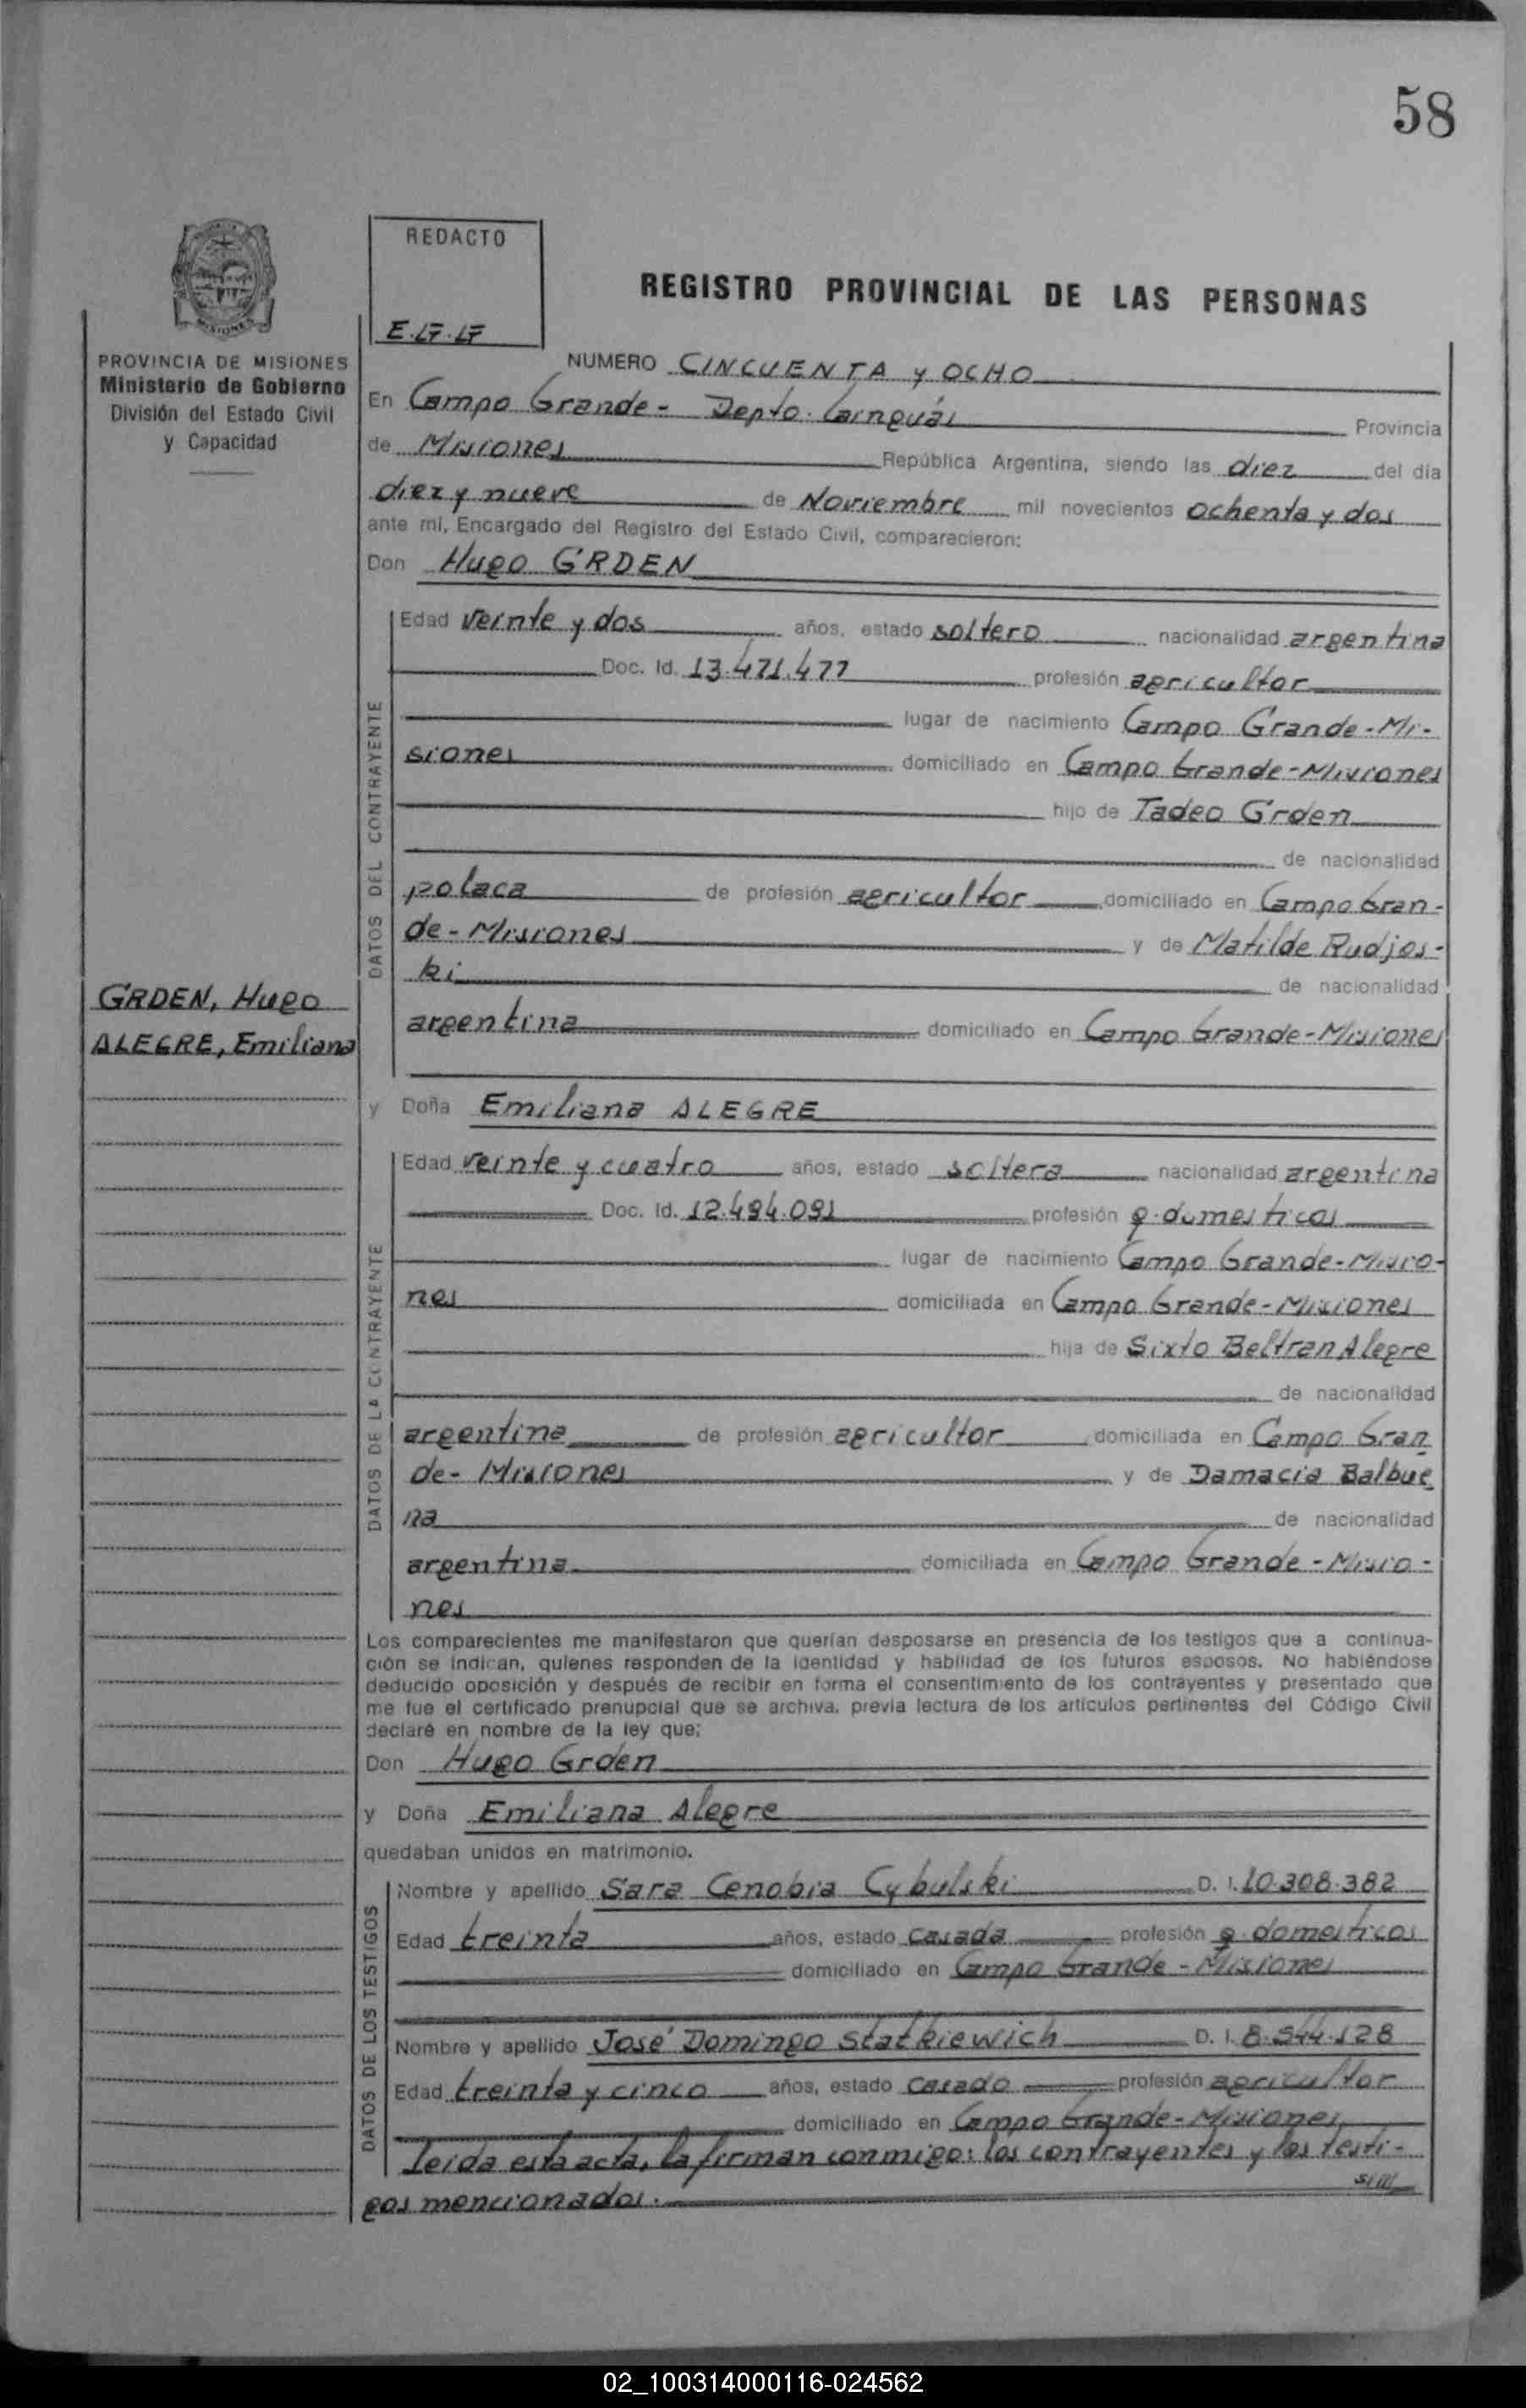 58
REDACTO
E.17.17
REGISTRO PROVINCIAL DE LAS PERSONAS
PROVINCIA DE MISIONES
Ministerio de Gobierno
División del Estado Civil
y Capacidad
NUMERO CINCUENTA y OCHO
En Campo Grande - Depto. Cainguás Provincia
de Misiones República Argentina, siendo las diez del día
diez y nueve de Noviembre mil novecientos ochenta y dos
ante mí, Encargado del Registro del Estado Civil, comparecieron:
Don Hugo GRDEN
DATOS DEL CONTRAYENTE
Edad veinte y dos años, estado soltero nacionalidad argentina
Doc. Id. 13.471.477 profesión agricultor
lugar de nacimiento Campo Grande-Mi-
siones domiciliado en Campo Grande-Misiones
hijo de Tadeo Grden
de nacionalidad
polaca de profesión agricultor domiciliado en Campo Gran-
de-Misiones y de Matilde Rudjos-
ki de nacionalidad
argentina domiciliado en Campo Grande-Misiones
GRDEN, Hugo
ALEGRE, Emiliana
y Doña Emiliana ALEGRE
DATOS DE LA CONTRAYENTE
Edad veinte y cuatro años, estado soltera nacionalidad argentina
Doc. Id. 12.494.091 profesión q. domesticos
lugar de nacimiento Campo Grande-Misio-
nes domiciliada en Campo Grande-Misiones
hija de Sixto Beltran Alegre
de nacionalidad
argentina de profesión agricultor domiciliada en Campo Gran
de-Misiones y de Damacia Balbue
na de nacionalidad
argentina domiciliada en Campo Grande-Misio-
nes
Los comparecientes me manifestaron que querían desposarse en presencia de los testigos que a continua-
ción se indican, quienes responden de la identidad y habilidad de los futuros esposos. No habiéndose
deducido oposición y después de recibir en forma el consentimiento de los contrayentes y presentado que
me fue el certificado prenupcial que se archiva, previa lectura de los artículos pertinentes del Código Civil
declaré en nombre de la ley que:
Don Hugo Grden
y Doña Emiliana Alegre
quedaban unidos en matrimonio.
DATOS DE LOS TESTIGOS
Nombre y apellido Sara Cenobia Cybulski D. I. 10.308.382
Edad treinta años, estado casada profesión q. domesticos
domiciliado en Campo Grande-Misiones
Nombre y apellido José Domingo Statkiewich D. I. 8.544.128
Edad treinta y cinco años, estado casado profesión agricultor
domiciliado en Campo Grande-Misiones
Leida esta acta, la firman conmigo: los contrayentes y los testi-
gos mencionados.
02_100314000116-024562